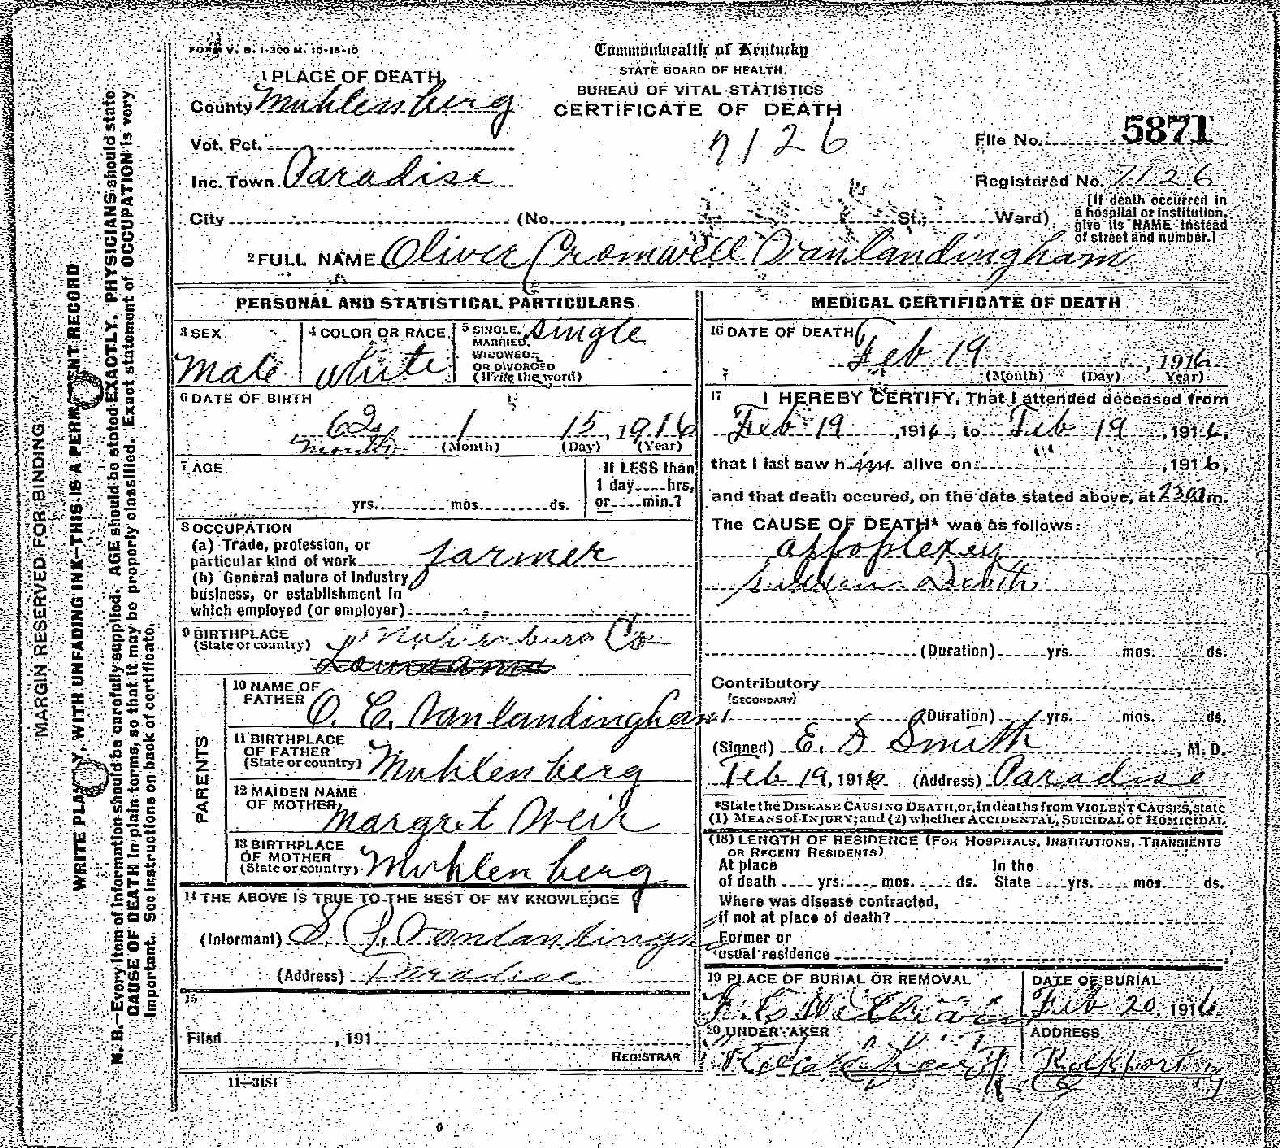 FORM V. S. 1-300 M. 10-18-10
Commonwealth of Kentucky
STATE BOARD OF HEALTH.
BUREAU OF VITAL STATISTICS
CERTIFICATE OF DEATH
1 PLACE OF DEATH
County Muhlenberg
Vot. Pct.
Inc. Town Paradise
City (No. St.; Ward)
7126
File No. 5871
Registered No. 7126
[If death occurred in
a hospital or institution,
give its NAME instead
of street and number.]
2 FULL NAME Oliver Cromwell Vanlandingham
PERSONAL AND STATISTICAL PARTICULARS
3 SEX
Male
4 COLOR OR RACE
White
5 SINGLE,
MARRIED,
WIDOWED,
OR DIVORCED
(Write the word)
single
6 DATE OF BIRTH
62 1 15, 1916
(Month) (Day) (Year)
7 AGE
yrs. mos. ds.
If LESS than
1 day hrs.
or min.?
8 OCCUPATION
(a) Trade, profession, or
particular kind of work farmer
(b) General nature of Industry,
business, or establishment in
which employed (or employer)
9 BIRTHPLACE
(State or country)
Co
PARENTS
10 NAME OF
FATHER O. C. Vanlandingham
11 BIRTHPLACE
OF FATHER
(State or country) Muhlenberg
12 MAIDEN NAME
OF MOTHER
Margret Weir
13 BIRTHPLACE
OF MOTHER
(State or country) Muhlenberg
14 THE ABOVE IS TRUE TO THE BEST OF MY KNOWLEDGE
(Informant) S. P. Vanlandingham
(Address) Paradise
15
Filed , 191
REGISTRAR
11—3184
MEDICAL CERTIFICATE OF DEATH
16 DATE OF DEATH
Feb 19, 1916
(Month) (Day) Year)
17 I HEREBY CERTIFY, That I attended deceased from
Feb 19, 1916, to Feb 19, 1916,
that I last saw him alive on , 1916,
and that death occured, on the date stated above, at m.
The CAUSE OF DEATH* was as follows:
appoplexey
sudden Death
(Duration) yrs. mos. ds.
Contributory
(SECONDARY)
(Duration) yrs. mos. ds.
(Signed) E. D Smith, M. D.
Feb 19, 1916 (Address) Paradise
*State the DISEASE CAUSING DEATH, or, in deaths from VIOLENT CAUSES, state
(1) MEANS of INJURY; and (2) whether ACCIDENTAL, SUICIDAL or HOMICIDAL.
(18) LENGTH OF RESIDENCE (FOR HOSPITALS, INSTITUTIONS, TRANSIENTS
OR RECENT RESIDENTS)
At place
of death yrs. mos. ds.
In the
State yrs. mos. ds.
Where was disease contracted,
if not at place of death?
Former or
usual residence
19 PLACE OF BURIAL OR REMOVAL
DATE OF BURIAL
Feb 20 1916
20 UNDERTAKER
ADDRESS
Rockport
Ky
MARGIN RESERVED FOR BINDING.
WRITE PLAINLY, WITH UNFADING INK—THIS IS A PERMANENT RECORD
N. B.—Every item of information should be carefully supplied. AGE should be stated EXACTLY. PHYSICIANS should state
CAUSE OF DEATH in plain terms, so that it may be properly classified. Exact statement of OCCUPATION is very
important. See instructions on back of certificate.